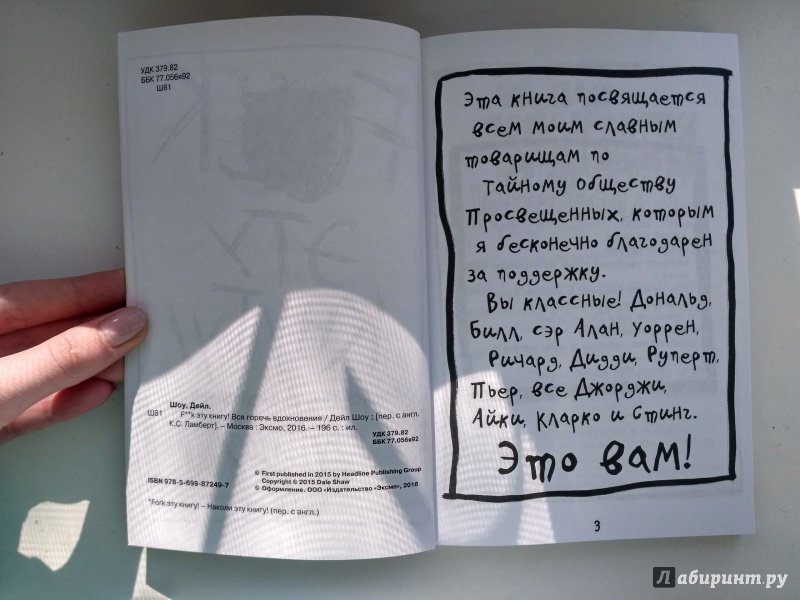 УДК 379.82
ББК 77.056я92
Ш81
Шоу, Дейл.
Ш81 F**k эту книгу! Вся горечь вдохновения / Дейл Шоу ; [пер. с англ.
К.С. Ламберт]. – Москва : Эксмо, 2016. – 196 с. : ил.
УДК 379.82
ББК 77.056я92
© First published in 2015 by Headline Publishing Group
Copyright © 2015 Dale Shaw
ISBN 978-5-699-87249-7
© Оформление. ООО «Издательство «Эксмо», 2016
*Fork эту книгу! – Наколи эту книгу! (пер. с англ.)
Эта книга посвящается
всем моим славным
товарищам по
Тайному Обществу
Просвещенных, которым
я бесконечно благодарен
за поддержку.
Вы классные! Дональд,
Билл, сэр Алан, Уоррен,
Ричард, Дидди, Руперт,
Пьер, все Джорджи,
Айки, Кларко и Стинг.
Это вам!
3
Лабиринт.ру